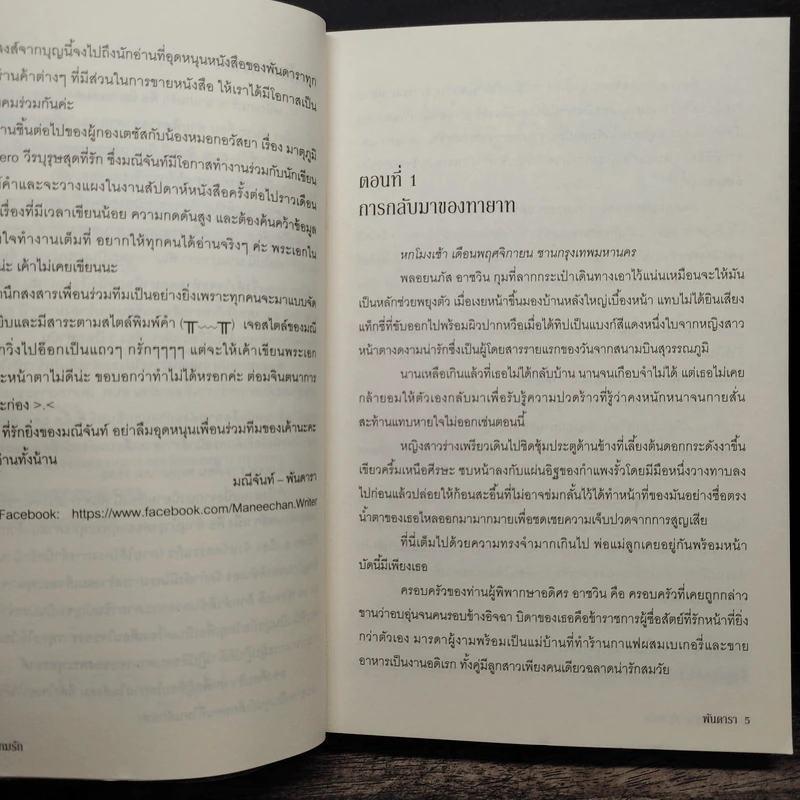 งส์จากบุญนี้จงไปถึงนักอ่านที่อุดหนุนหนังสือของพันดาราทุก
ร้านค้าต่างๆ ที่มีส่วนในการขายหนังสือ ให้เราได้มีโอกาสเป็น
คมร่วมกันค่ะ
านชิ้นต่อไปของผู้กองเตชัสกับน้องหมอกอวัสยา เรื่อง มาตุภูมิ
ero วีรบุรุษสุดที่รัก ซึ่งมณีจันท์มีโอกาสทำงานร่วมกับนักเขียน
์คำและจะวางแผงในงานสัปดาห์หนังสือครั้งต่อไปราวเดือน
เรื่องที่มีเวลาเขียนน้อย ความกดดันสูง และต้องค้นคว้าข้อมูล
งใจทำงานเต็มที่ อยากให้ทุกคนได้อ่านจริงๆ ค่ะ พระเอกใน
น่ะ เค้าไม่เคยเขียนนะ
นึกสงสารเพื่อนร่วมทีมเป็นอย่างยิ่งเพราะทุกคนจะมาแบบจัด
ยิบและมีสาระตามสไตล์พิมพ์คำ (╥﹏╥) เจอสไตล์ของมณี
กวิ่งไปอ๊อกเป็นแถวๆ กรั่กๆๆๆๆ แต่จะให้เค้าเขียนพระเอก
ะหน้าตาไม่ดีน่ะ ขอบอกว่าทำไม่ได้หรอกค่ะ ต่อมจินตนาการ
ะก่อง >.<
ที่รักยิ่งของมณีจันท์ อย่าลืมอุดหนุนเพื่อนร่วมทีมของเค้านะคะ
่านทั้งน้าน
มณีจันท์ – พันดารา
Facebook: https://www.facebook.com/Maneechan.Writer
กมรัก
ตอนที่ 1
การกลับมาของทายาท
หกโมงเช้า เดือนพฤศจิกายน ชานกรุงเทพมหานคร
พลอยนภัส อาชวิน กุมที่ลากกระเป๋าเดินทางเอาไว้แน่นเหมือนจะให้มัน
เป็นหลักช่วยพยุงตัว เมื่อเงยหน้าขึ้นมองบ้านหลังใหญ่เบื้องหน้า แทบไม่ได้ยินเสียง
แท็กซี่ที่ขับออกไปพร้อมผิวปากหวือเมื่อได้ทิปเป็นแบงก์สีแดงหนึ่งใบจากหญิงสาว
หน้าตางดงามน่ารักซึ่งเป็นผู้โดยสารรายแรกของวันจากสนามบินสุวรรณภูมิ
นานเหลือเกินแล้วที่เธอไม่ได้กลับบ้าน นานจนเกือบจำไม่ได้ แต่เธอไม่เคย
กล้ายอมให้ตัวเองกลับมาเพื่อรับรู้ความปวดร้าวที่รู้ว่าคงหนักหนาจนกายสั่น
สะท้านแทบหายใจไม่ออกเช่นตอนนี้
หญิงสาวร่างเพรียวเดินไปชิดซุ้มประตูด้านข้างที่เลี้ยงต้นดอกกระดังงาขึ้น
เขียวครึ้มเหนือศีรษะ ซบหน้าลงกับแผ่นอิฐของกำแพงรั้วโดยมีมือหนึ่งวางทาบลง
ไปก่อนแล้วปล่อยให้ก้อนสะอื้นที่ไม่อาจข่มกลั้นไว้ได้ทำหน้าที่ของมันอย่างซื่อตรง
น้ำตาของเธอไหลออกมามากมายเพื่อชดเชยความเจ็บปวดจากการสูญเสีย
ที่นี่เต็มไปด้วยความทรงจำมากเกินไป พ่อแม่ลูกเคยอยู่กันพร้อมหน้า
บัดนี้มีเพียงเธอ
ครอบครัวของท่านผู้พิพากษาอดิศร อาชวิน คือ ครอบครัวที่เคยถูกกล่าว
ขานว่าอบอุ่นจนคนรอบข้างอิจฉา บิดาของเธอคือข้าราชการผู้ซื่อสัตย์ที่รักหน้าที่ยิ่ง
กว่าตัวเอง มารดาผู้งามพร้อมเป็นแม่บ้านที่ทำร้านกาแฟผสมเบเกอรี่และขาย
อาหารเป็นงานอดิเรก ทั้งคู่มีลูกสาวเพียงคนเดียวฉลาดน่ารักสมวัย
พันดารา 5